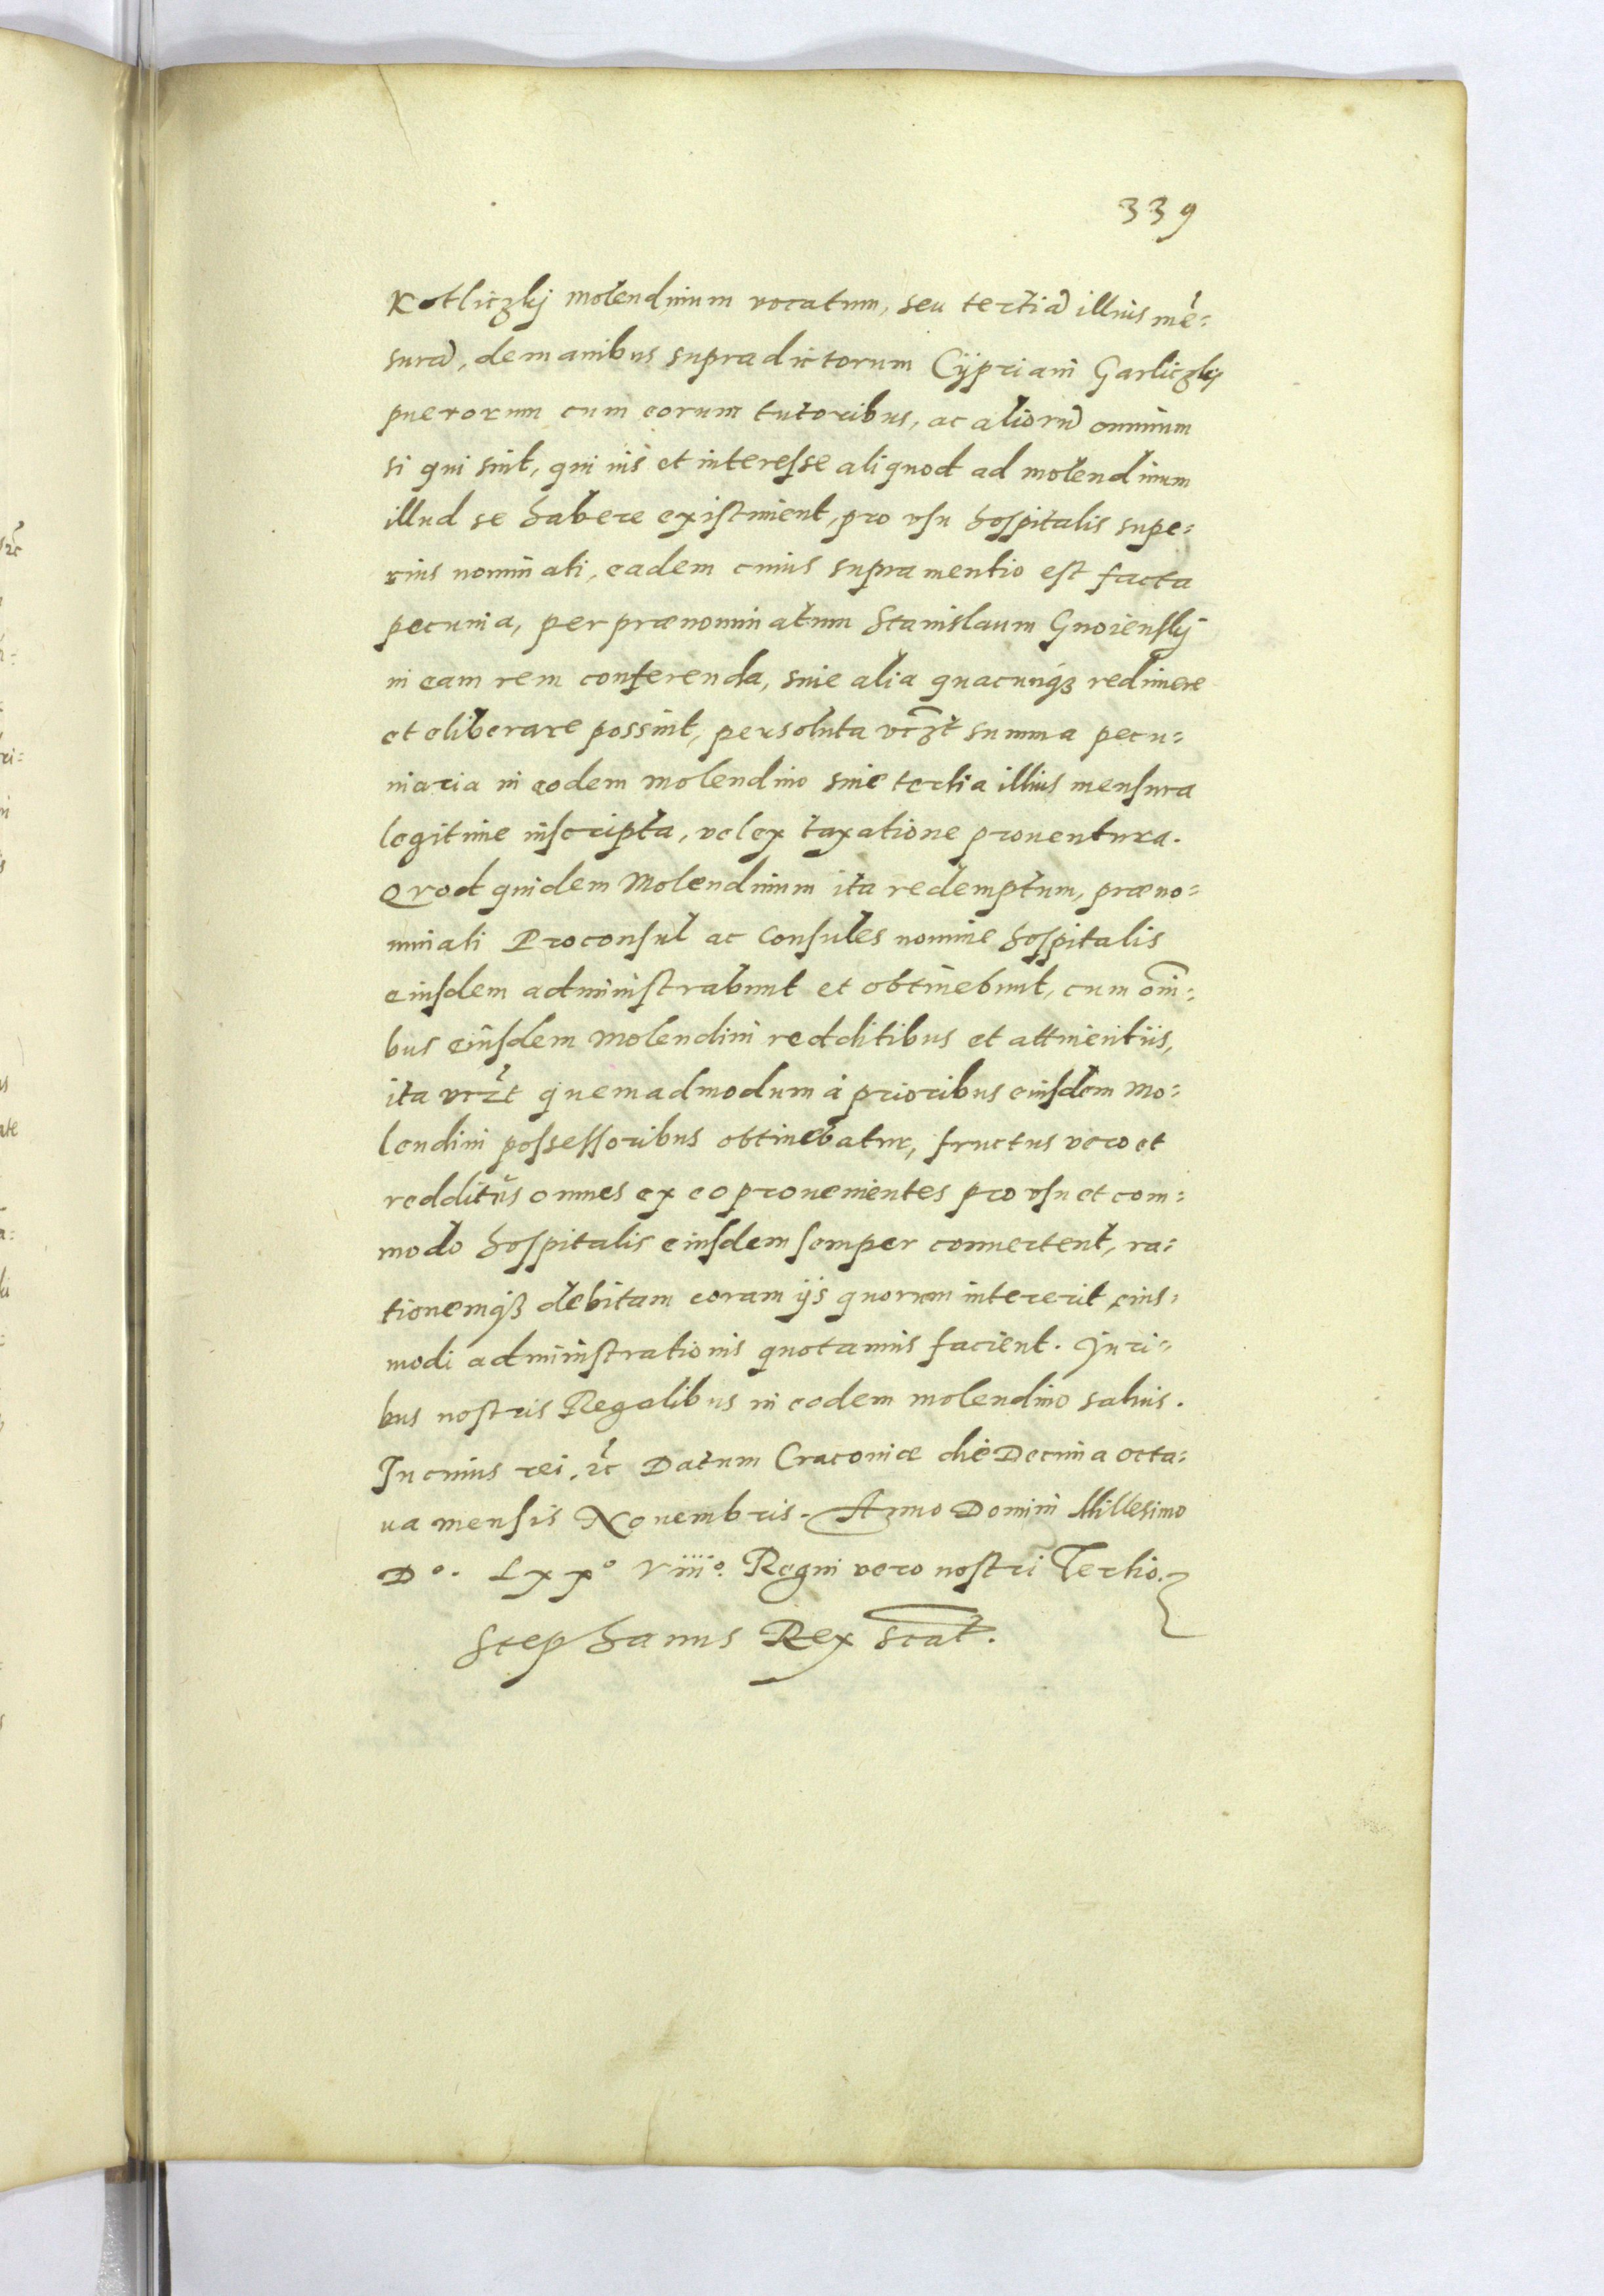 339
Kotliczkj molendinum vocatum, seu tertiã illius mẽ=
surã, de manibus supradictorum Cÿpriani Garliczkÿ
puerorum cum eorum tutoribus, ac aliorũ omnium
si qui sint, qui ius et interesse aliquod ad molendinum
illud se habere existiment, pro vsu hospitalis supe=
rius nominati, eadem cuius supra mentio est facta
pecunia, per prænominatum Stanislaum Gnoienskj
in eam rem conferenda, siue alia quacunqȝ redimere
et eliberare possint, persoluta vcȝt summa pecu=
niaria in eodem molendino siue tertia illius mensura
legitime inscripta, vel ex taxatione prouentura.
Qvod quidem Molendinum ita redemptum, præno=
minati Proconsul ac Consules nomine hospitalis
eiusdem administrabunt et obtinebunt, cum om̄i=
bus eiusdem molendini redditibus et attinentiis,
ita vcȝt quemadmodum à prioribus eiusdem mo=
lendini possessoribus obtinebatur, fructus vero et
redditus omnes ex eo prouenientes pro vsu et com=
modo hospitalis eiusdem semper conuertent, ra=
tionemqȝ debitam coram ijs quorum intererit, eius=
modi administrationis quotannis facient. Juri=
bus nostris Regalibus in eodem molendino saluis.
In cuius rei, ꝛc Datum Cracouiæ die Decima octa=
ua mensis Nouembris. Anno Domini Millesimo
Dº. Lxxº Viiiº. Regni vero nostri Tertio.
Stephanus Rex sc̄at.